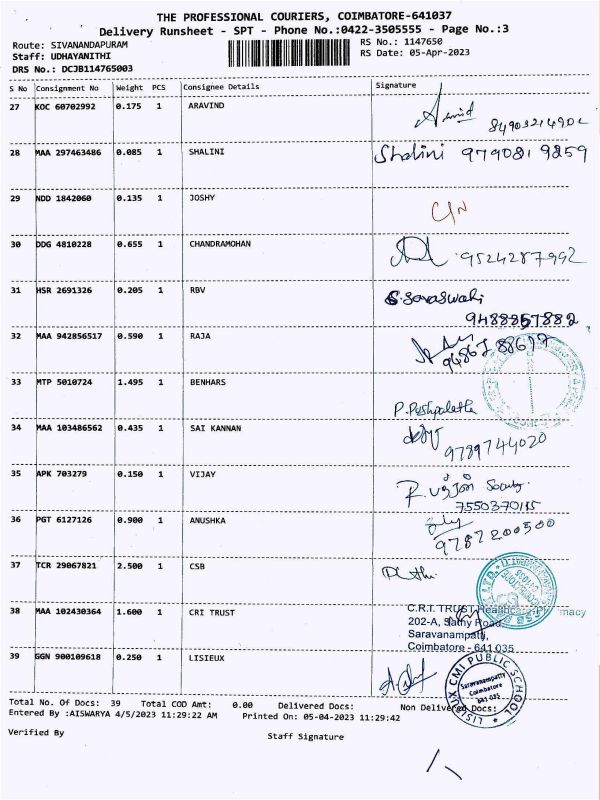 THE PROFESSIONAL COURIERS, COIMBATORE-641037
Delivery Runsheet - SPT - Phone No.:0422-3505555 - Page No.:3
Route: SIVANANDAPURAM RS No.: 1147650
Staff: UDHAYANITHI RS Date: 05-Apr-2023
DRS No.: DCJB114765003
S No Consignment No Weight PCS Consignee Details Signature
27 KOC 60702992 0.175 1 ARAVIND
28 MAA 297463486 0.085 1 SHALINI Shalini 9790819859
29 NDD 1842060 0.135 1 JOSHY
30 DDG 4810228 0.655 1 CHANDRAMOHAN 9524287992
31 HSR 2691326 0.205 1 RBV S. Saraswathi
9488857882
32 MAA 942856517 0.590 1 RAJA
33 MTP 5010724 1.495 1 BENHARS P. Pushpalatha
34 MAA 103486562 0.435 1 SAI KANNAN
9789744020
35 APK 703279 0.150 1 VIJAY
36 PGT 6127126 0.900 1 ANUSHKA
9787200500
37 TCR 29067821 2.500 1 CSB
38 MAA 102430364 1.600 1 CRI TRUST C.R.I. TRUST Healthcare Pharmacy
202-A, Sathy Road,
Saravanampatti,
Coimbatore - 641 035
39 GGN 900109618 0.250 1 LISIEUX
LISIEUX CMI PUBLIC SCHOOL
Saravanampatty
Coimbatore
641 035
Total No. Of Docs: 39 Total COD Amt: 0.00 Delivered Docs: Non Delivered Docs:
Entered By :AISWARYA 4/5/2023 11:29:22 AM Printed On: 05-04-2023 11:29:42
Verified By Staff Signature